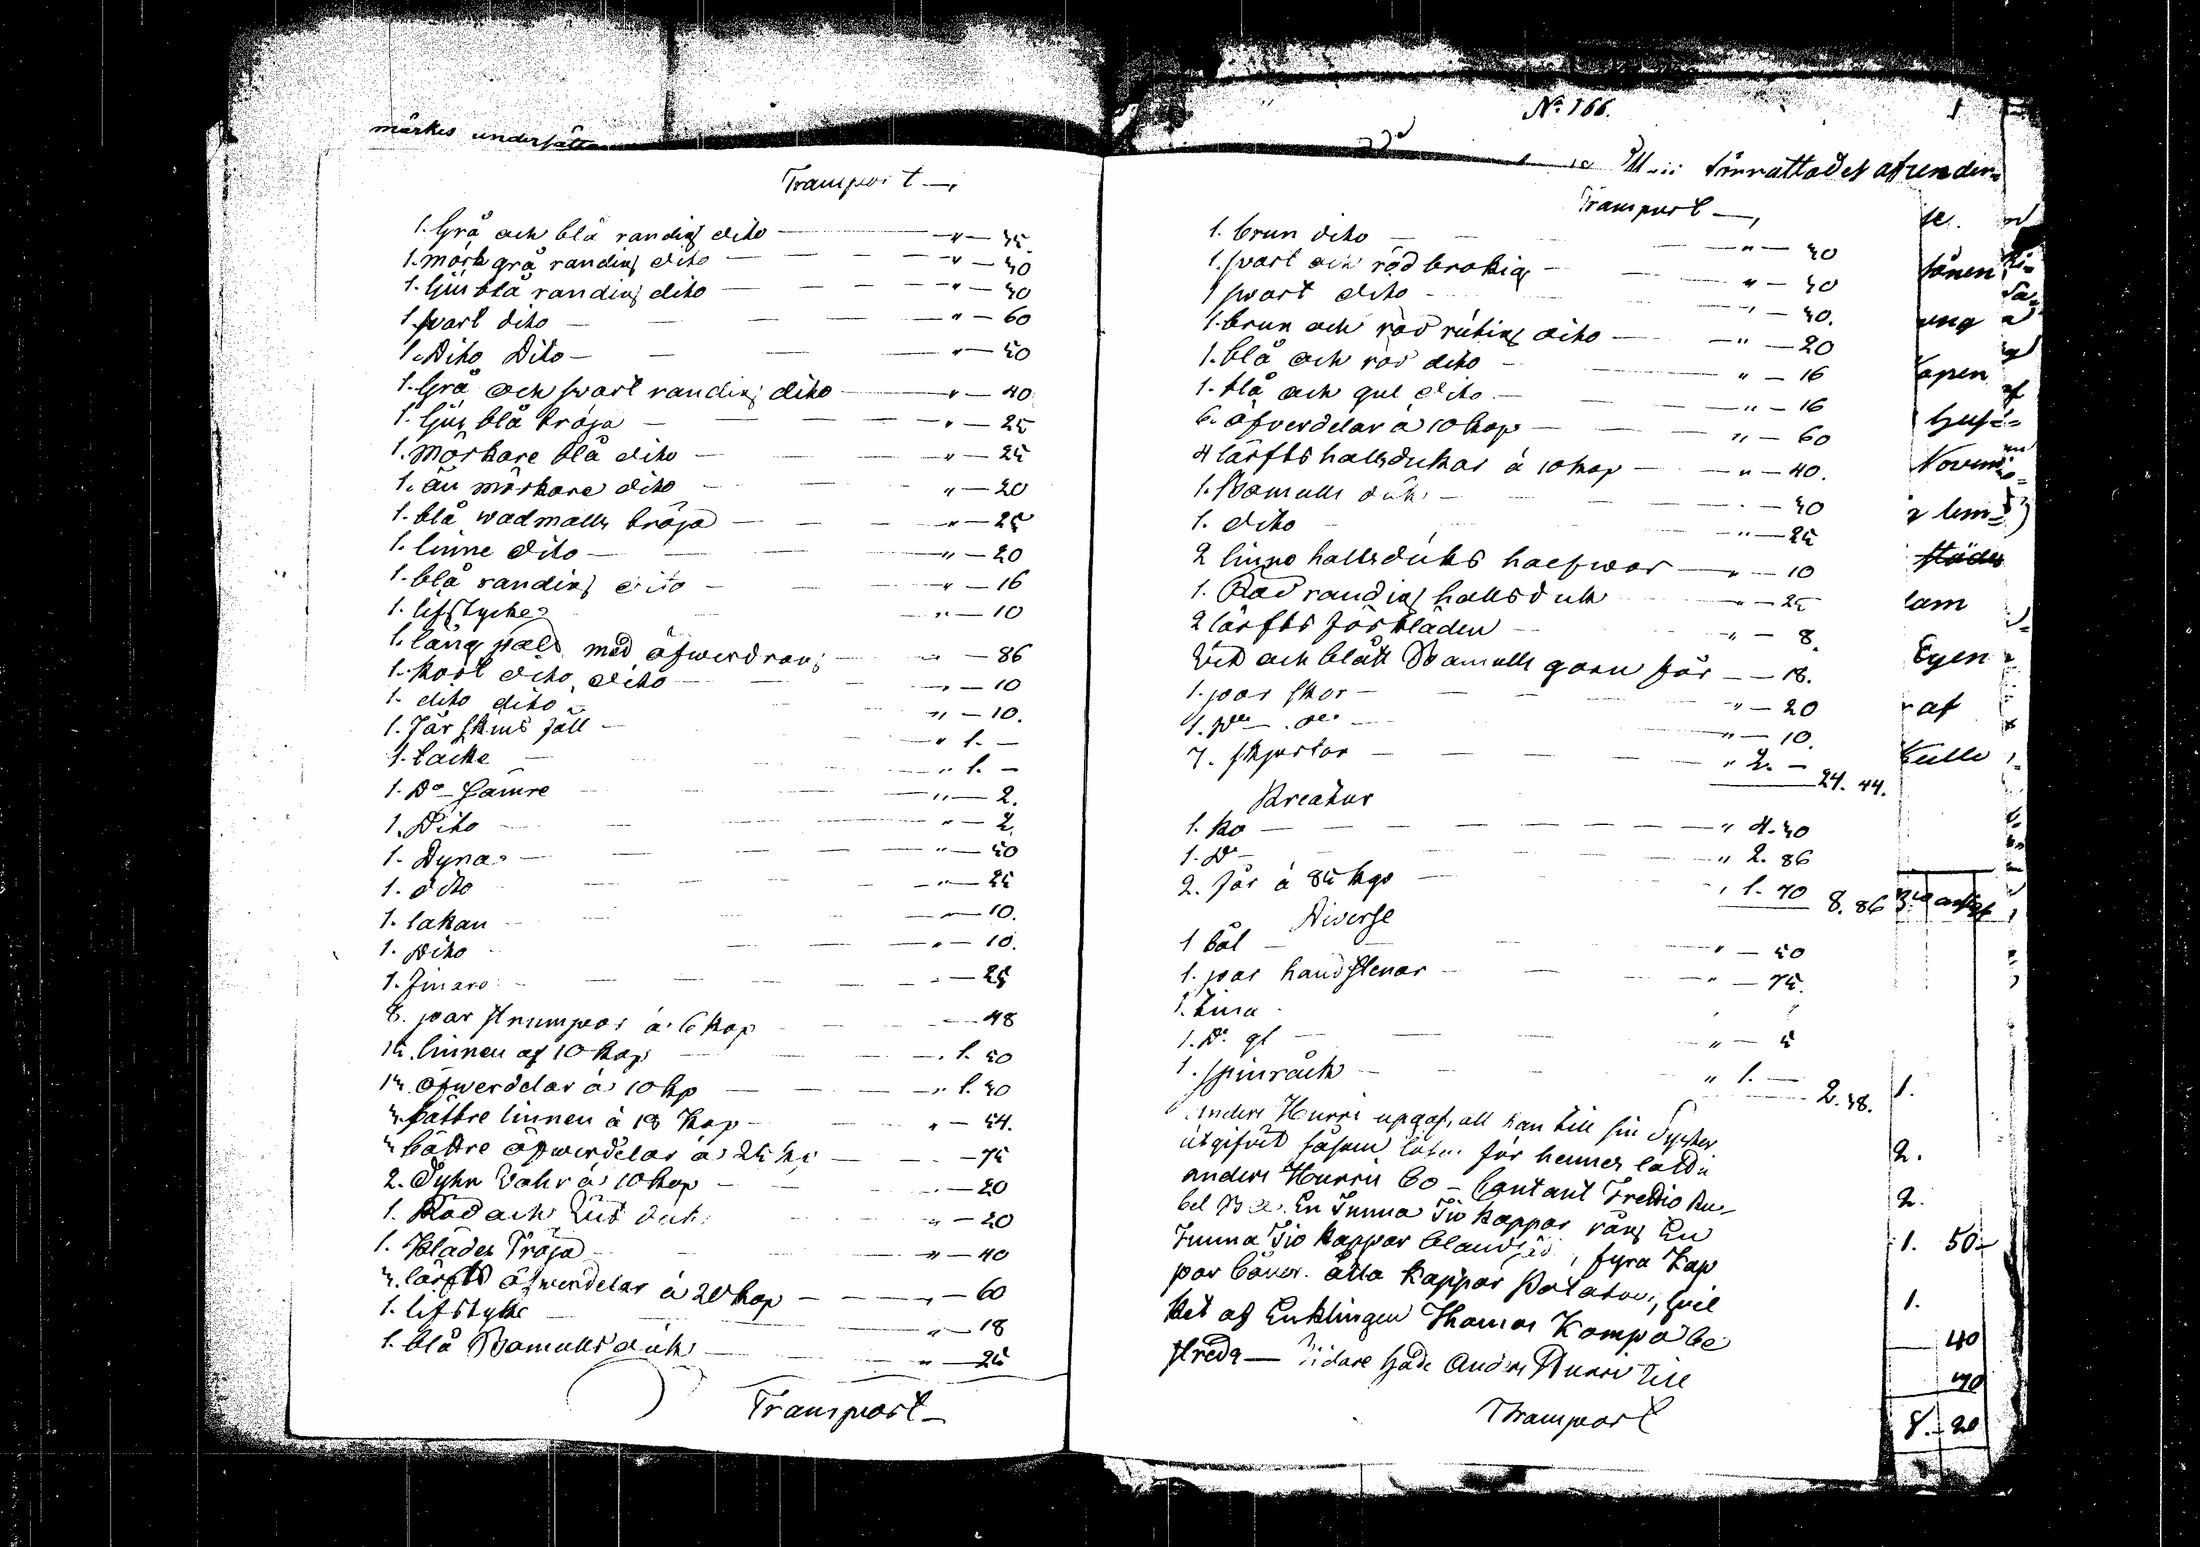 märkes undersåtte
Transport
1. Grå och blå randig dito " 45.
1. mörk grå randig dito " 50
1. ljus blå randig dito " 50
1. svart dito " 60
1. Dito Dito " 50
1. Grå och svart randig dito " 40
1. ljus blå tröja " 25
1. Mörkare blå dito " 25
1. än mörkare dito " 20
1. blå wadmalls tröja " 25
1. linne dito " 20
1. blå randig dito " 16
1. lifstycke " 10
1. lång päls med öfwerdrag " 86
1. kort dito dito " 10
1. dito dito " 10.
1. Får skins fäll " 1. —
1. täcke " 1. —
1. Do Sämre " 2.
1. Dito " 2.
1. Dyna " 50
1. dito " 25
1. lakan " 10.
1. Dito " 10.
1. finare 25
8. par strumpor à 6 kop 48
15. linnen af 10 kop " 1. 50
15 öfwerdelar à 10 kp " 1. 50
3. bättre linnen à 18 kop " 54.
3 bättre öfwerdelar à 25 k 75
2. Dyhn Wahr à 10 kop 20
1. Röd och duk " 20
1. Klädes Tröja " 40
3. lärfts öfwerdelar à 20 kop 60
1. lifstyke " 18
1. blå Bomulls duk " 25
Transport
No 166.
förrättades afundin=
Transport
1. brun dito " 50
1. svart och röd brokig " 50
1 svart dito " 50.
1. brun och röd rutig dito " 20
1. blå och röd dito " 16
1. blå och gul dito " 16
6. öfverdelar à 10 kop " 60
4 lärfts hallsdukar à 10 kop " 40.
1. Bomulls duk 50
1. dito " 25
2 linne hallsduks " 10
1. Röd randig hallsduk " 25
2 lärfts förkläden " 8.
och blått Bomulls garn för 18.
1. par skor " 20
1. Do do " 10.
7. skjortor " 2. —
24. 44.
Kreatur
1. ko " 4. 50
1. Do " 2. 86
2. får à 85 kop " 1. 70 8. 86
Diverse
1 bål " 50
1. par handstenar " 75.
1. tina
1. Do gl " 5
1. spinråck " 1. —
2. 38.
Anders Hurri upgaf, att han till sin Syster
utgifvit såsom för hennes
anders Hurris Co Contant Tredio Ru-
bel En Tunna Tio kappar råg En
Tunna Tio kappar blandsäd, fyra kap
par bönor. åtta kappar Potatoes, hvil
ket af Enklingen Thomas Kompa be
streds — Vidare hade Anders Hurri till
Transport
se.
sönen
ung
apen
hus=
Novem
lem=
städes
lam
Egen
af
Kulle
1.
2.
2.
1. 50
1.
40
70
8. 20